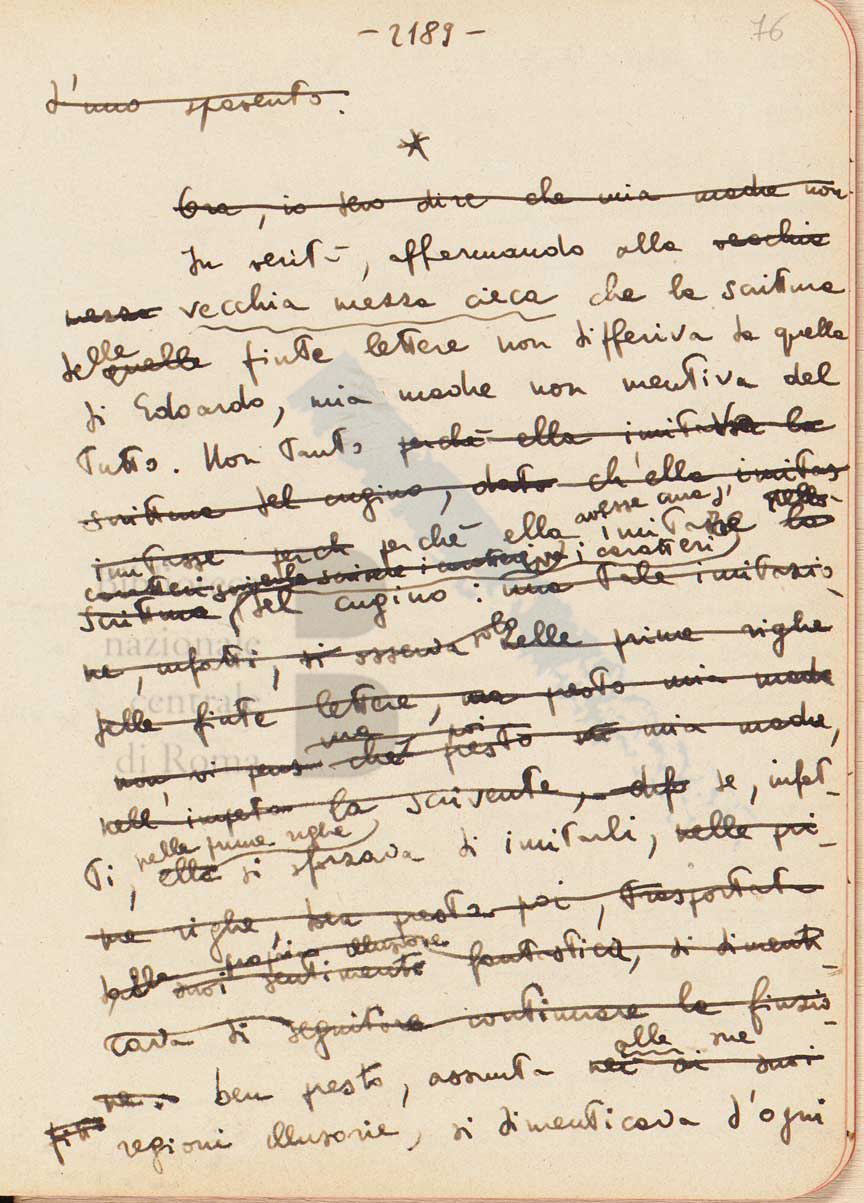 - 2189 -
76
d'uno spavento.
*
Ora, io devo dire che mia madre non
In verità, affermando alla vecchia
mezza vecchia mezza cieca che la scrittura
delle quelle finte lettere non differiva da quella
di Edoardo, mia madre non mentiva del
tutto. Non tanto perché ella imitava la
scrittura del cugino, dato ch'ella imitas
imitasse perch perché ella avesse imitare la
i caratteri
scrittura del cugino: una tale imitazio-
ne, infatti, si osserva solo nelle prime righe
delle finte lettere, ma presto mia madre
ma poi
non vi pens ché presto mia madre,
nell'impeto la scrivente, dopo se, infat-
nelle prime righe
ti, ella si sforzava di imitarli, nelle pri-
me righe, ben presto poi, trasportata
propria illusione
dalla suoi sentimenti fantastica, si dimenti-
cava di seguitare continuare la finzio-
alle sue
ne. ben presto, assunta nei ai suoi
regioni illusorie, si dimenticava d'ogni